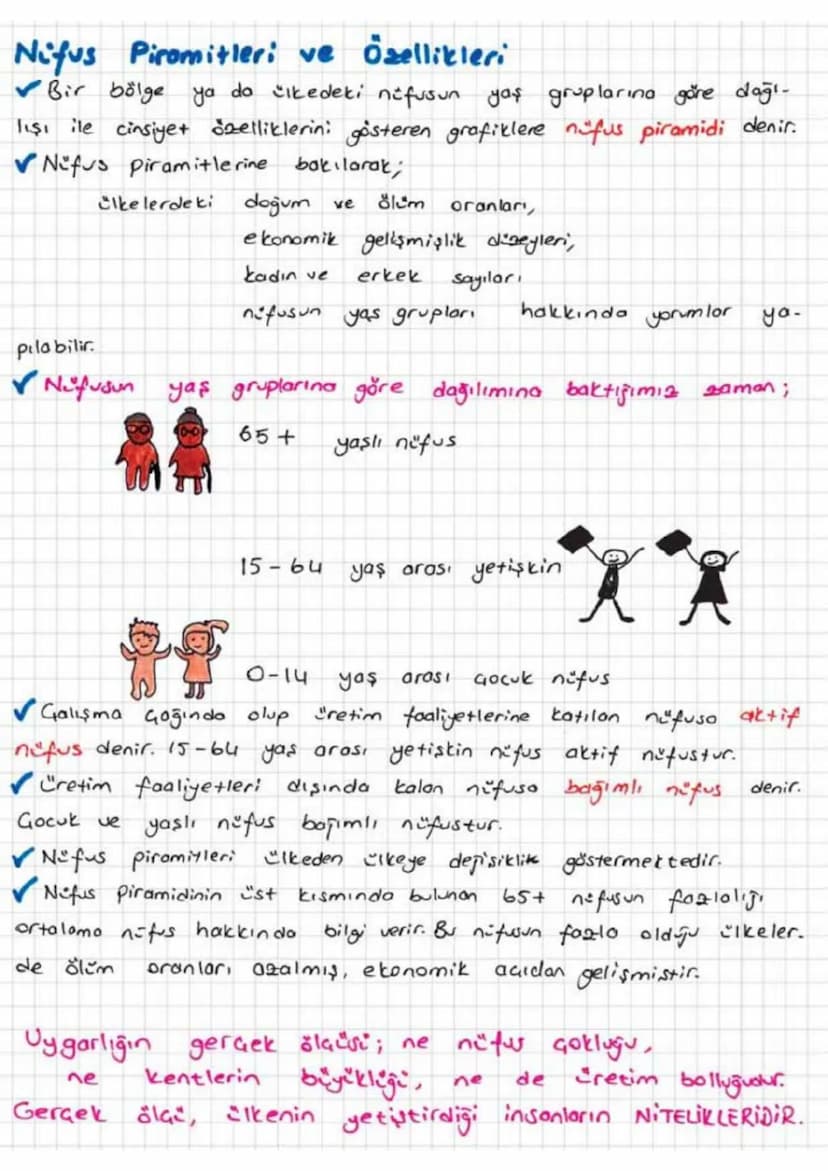 Nüfus Piramitleri ve Özellikleri
✓ Bir bölge ya da ülkedeki nüfusun yaş gruplarına göre dağı-
lışı ile cinsiyet özelliklerini gösteren grafiklere nüfus piramidi denir.
✓ Nüfus piramitlerine bakılarak;
ülkelerdeki doğum ve ölüm oranları,
ekonomik gelişmişlik düzeyleri,
kadın ve erkek sayıları
nüfusun yaş grupları hakkında yorumlar ya-
pılabilir.
✓ Nüfusun yaş gruplarına göre dağılımına baktığımız zaman;
65+ yaşlı nüfus
15-64 yaş arası yetişkin
0-14 yaş arası çocuk nüfus
✓ Çalışma çağında olup üretim faaliyetlerine katılan nüfusa aktif
nüfus denir. 15-64 yaş arası yetişkin nüfus aktif nüfustur.
✓ Üretim faaliyetleri dışında kalan nüfusa bağımlı nüfus denir.
Çocuk ve yaşlı nüfus bağımlı nüfustur.
✓ Nüfus piramitleri ülkeden ülkeye değişiklik göstermektedir.
✓ Nüfus Piramidinin üst kısmında bulunan 65+ nüfusun fazlalığı
ortalama nüfus hakkında bilgi verir. Bu nüfusun fazla olduğu ülkeler.
de ölüm oranları azalmış, ekonomik açıdan gelişmiştir.
Uygarlığın gerçek ölçüsü; ne nüfus çokluğu,
ne kentlerin büyüklüğü, ne de üretim bolluğudur.
Gerçek ölçü, ülkenin yetiştirdiği insanların NİTELİKLERİDİR.